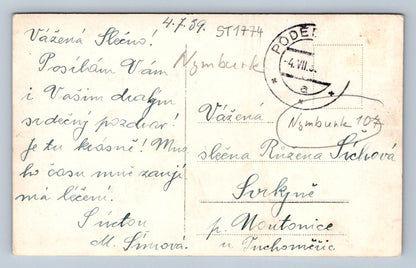 4.7.39. ST1774
Vážená Slečno!
Posílám Vám
i Vašim drahým
srdečný pozdrav!
Je tu krásně! Mno-
ho času mně zaují-
má léčení.
S úctou
M. Šímová.
Nymburk
PODĚ
-4.VII.3
a
Nymburk 107
Vážená
slečna Růžena Šíchová
Svrkyně
p. Noutonice
u Tuchoměřic